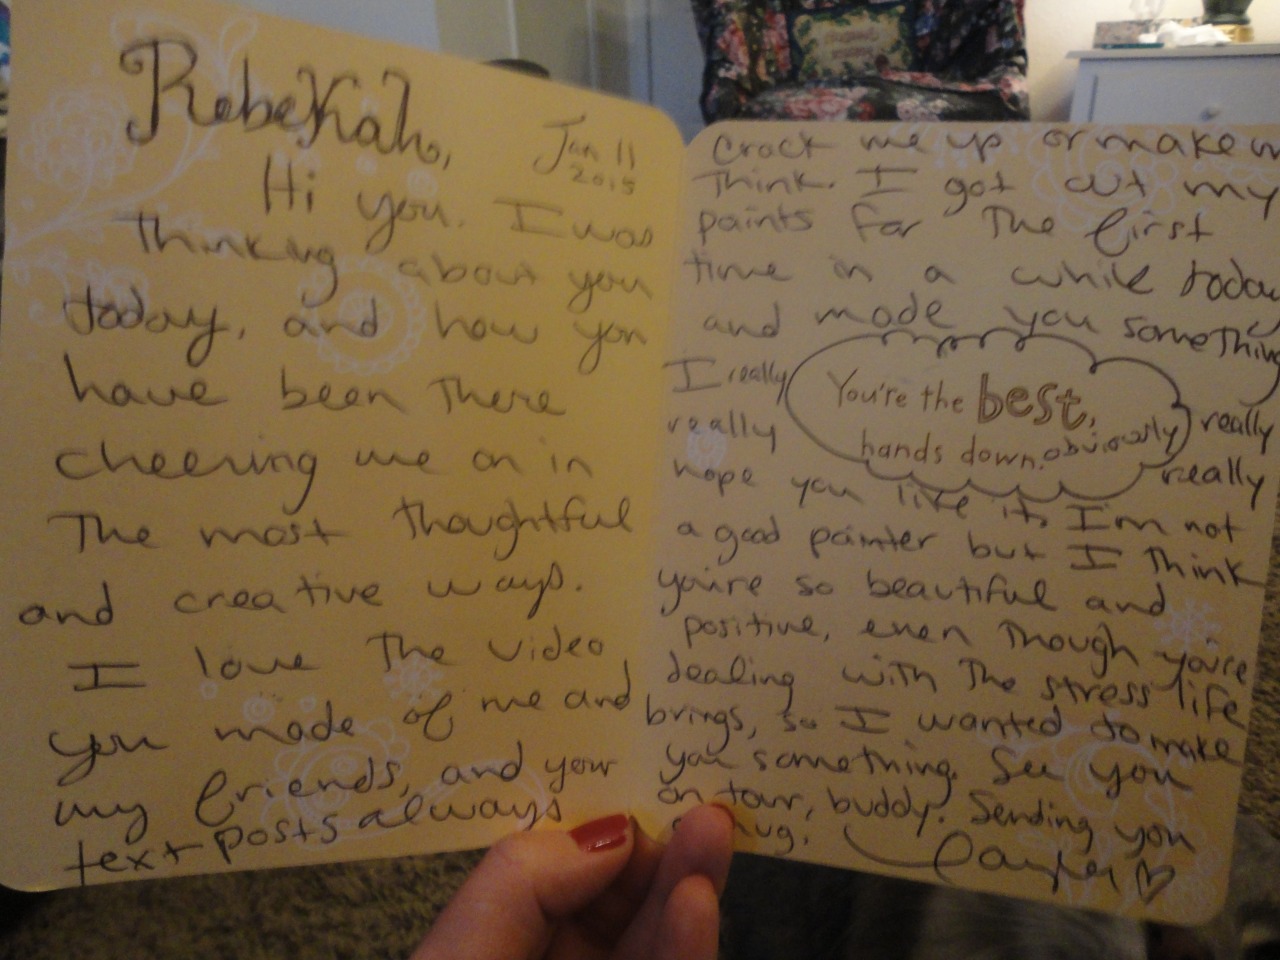 Rebekah,
Jan 11
2015
Hi you. I was
thinking about you
today, and how you
have been there
cheering me on in
the most thoughtful
and creative ways.
I love the video
you made of me and
my friends, and your
text posts always
crack me up or make m
think. I got out my
paints for the first
time in a while today
and made you something
I really
really
You're the best,
hands down. obviously
really
really
hope you like it. I'm not
a good painter but I think
you're so beautiful and
positive, even though you're
dealing with the stress life
brings, so I wanted to make
you something. See you
on tour, buddy. Sending you
hug.